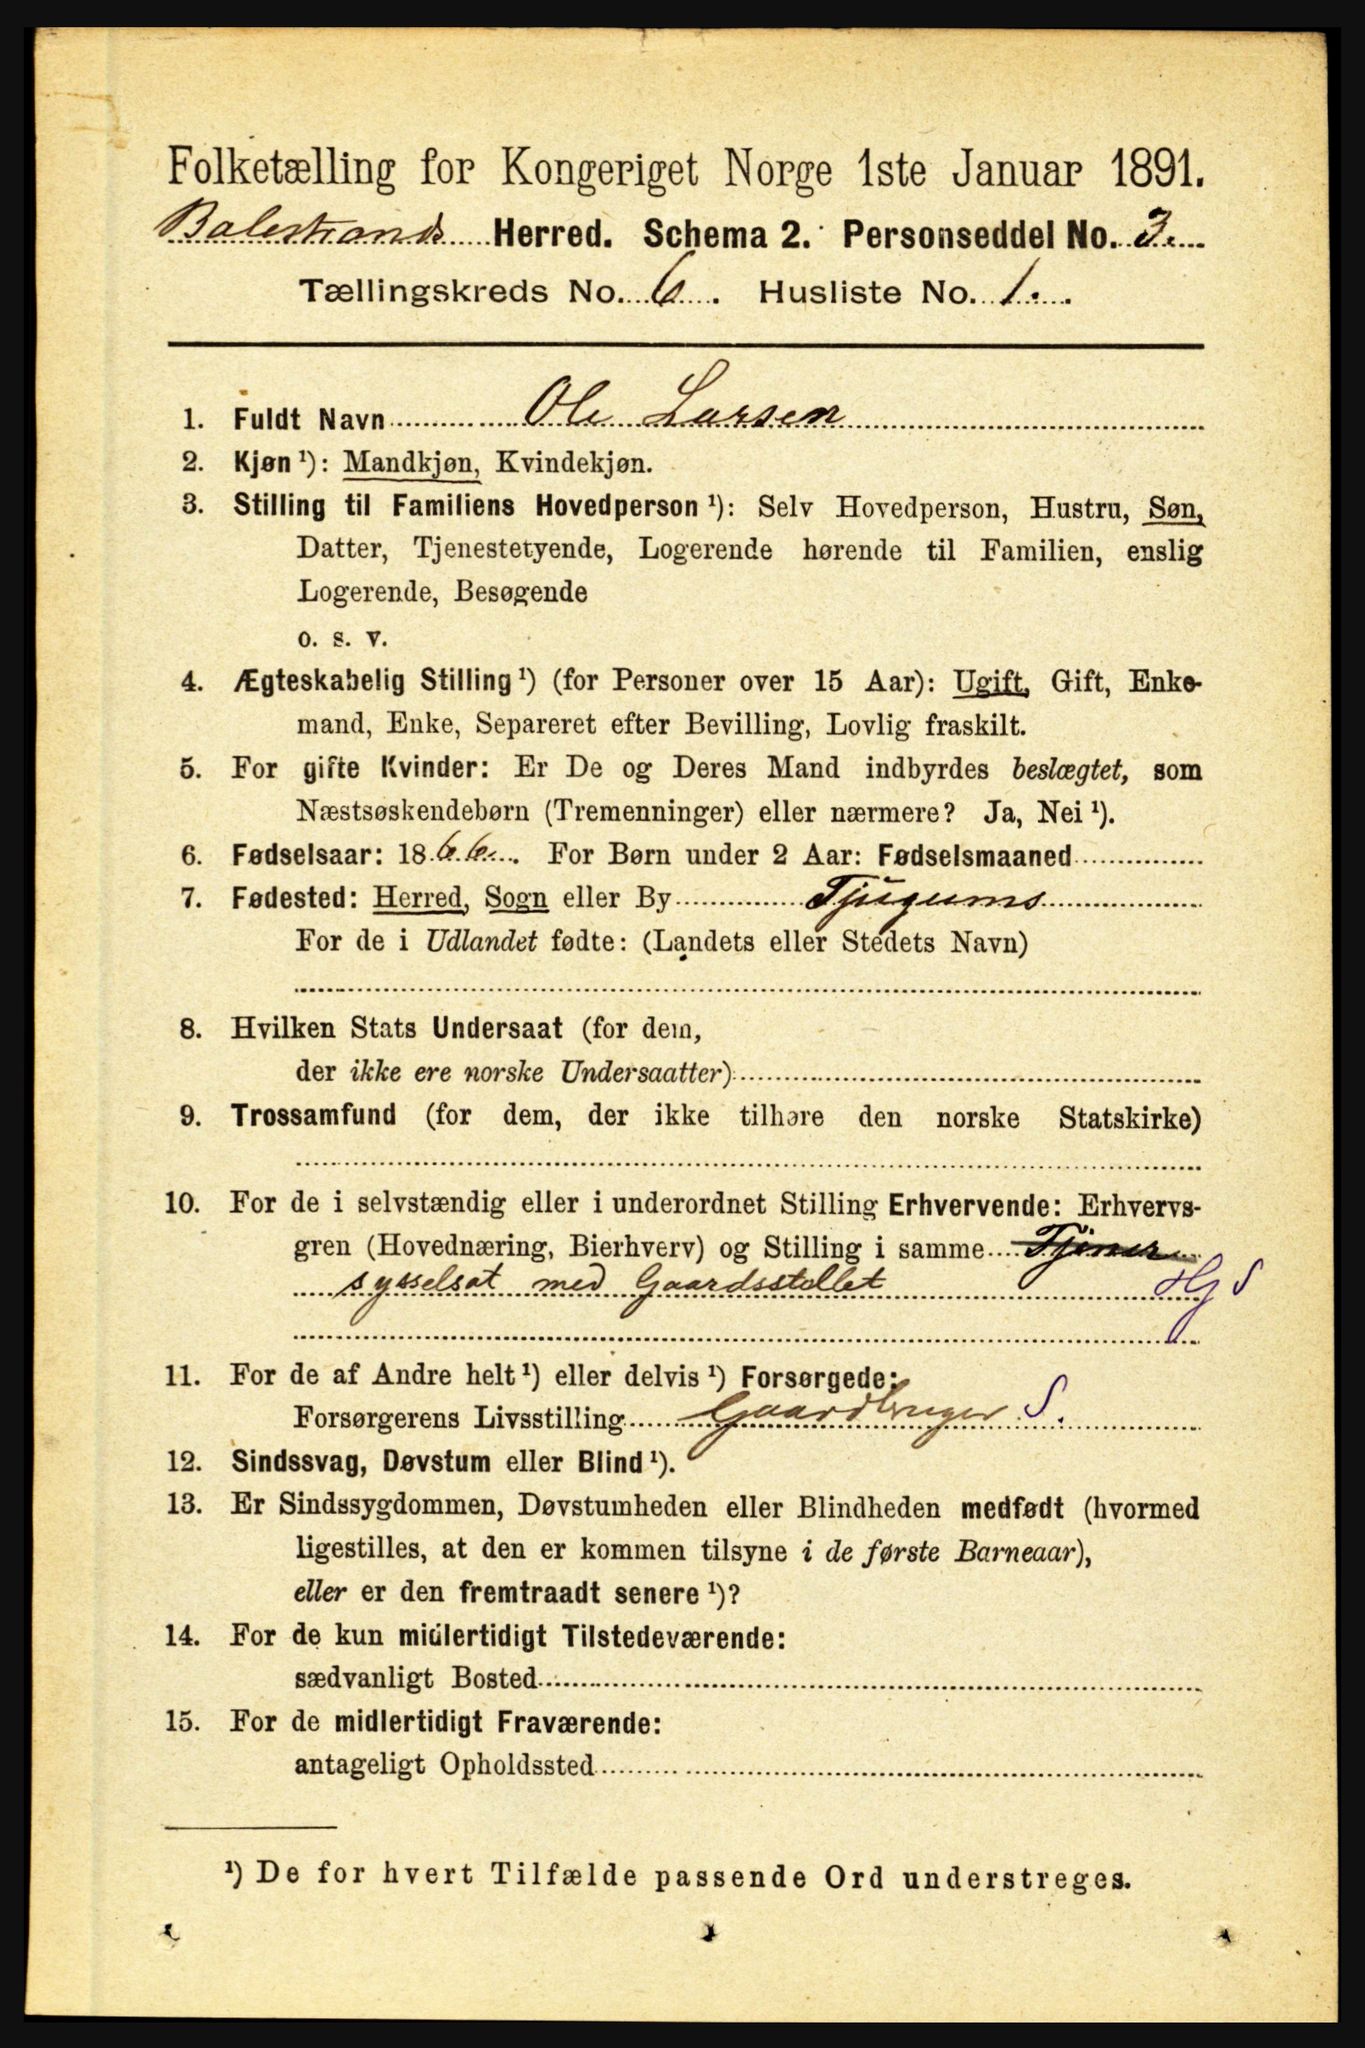 Folketælling for Kongeriget Norge 1ste Januar 1891.
Balestrands Herred. Schema 2. Personseddel No. 3.
Tællingskreds No. 6. Husliste No. 1.
1. Fuldt Navn Ole Larsen
2. Kjøn ¹): Mandkjøn, Kvindekjøn.
3. Stilling til Familiens Hovedperson ¹): Selv Hovedperson, Hustru, Søn,
Datter, Tjenestetyende, Logerende hørende til Familien, enslig
Logerende, Besøgende
o. s. v.
4. Ægteskabelig Stilling ¹) (for Personer over 15 Aar): Ugift, Gift, Enke-
mand, Enke, Separeret efter Bevilling, Lovlig fraskilt.
5. For gifte Kvinder: Er De og Deres Mand indbyrdes beslægtet, som
Næstsøskendebørn (Tremenninger) eller nærmere? Ja, Nei ¹).
6. Fødselsaar: 1866. For Børn under 2 Aar: Fødselsmaaned
7. Fødested: Herred, Sogn eller By Tjugums
For de i Udlandet fødte: (Landets eller Stedets Navn)
8. Hvilken Stats Undersaat (for dem,
der ikke ere norske Undersaatter)
9. Trossamfund (for dem, der ikke tilhøre den norske Statskirke)
10. For de i selvstændig eller i underordnet Stilling Erhvervende: Erhvervs-
gren (Hovednæring, Bierhverv) og Stilling i samme Tjener
sysselsat med Gaardsstellet HG S
11. For de af Andre helt ¹) eller delvis ¹) Forsørgede:
Forsørgerens Livsstilling Gaardbruger S.
12. Sindssvag, Døvstum eller Blind ¹).
13. Er Sindssygdommen, Døvstumheden eller Blindheden medfødt (hvormed
ligestilles, at den er kommen tilsyne i de første Barneaar),
eller er den fremtraadt senere ¹)?
14. For de kun midlertidigt Tilstedeværende:
sædvanligt Bosted
15. For de midlertidigt Fraværende:
antageligt Opholdssted
¹) De for hvert Tilfælde passende Ord understreges.